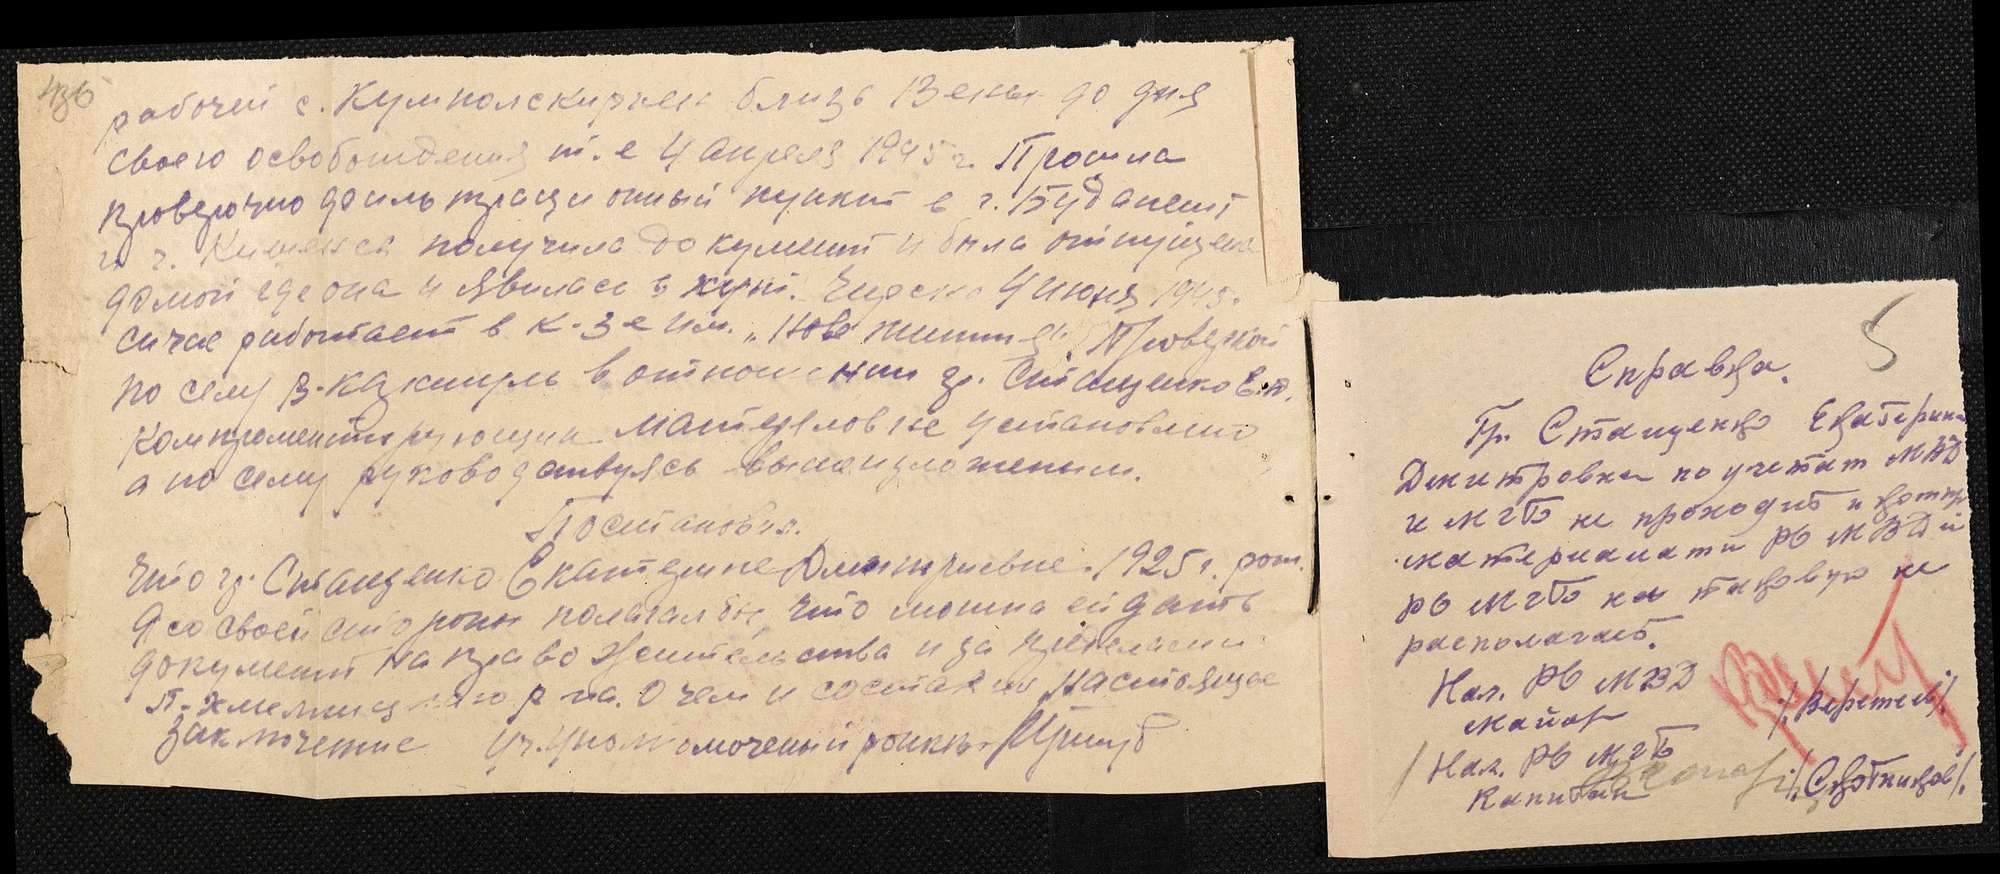 436
рабочей с. Кумполскирхен близь Вены до дня
своего освобождения т.е 4 апреля 1945 г. Прошла
проверочно фильтрационный пункт в г. Будапешт
и г. получила документ и была отпущена
домой где она и явилась в хут. 4 июня 1945.
сичас работает в к-зе им. „Нове життя". Проверкой
по селу в отношении гр. Стащенко Е.Д.
компроментирующих матерялов не установлено
а по сему руководствуясь вышеизложеным.
Постановил.
Что гр. Стащенко Екатерине Дмитриевне 1925 г. рож.
Я со своей стороны полагал бы, что можна ей дать
документ на право жительства и за пределами
П-Хмельницкого р-на. О чем и составлено настоящае
заключение Уч. Уполномоченый
5
Справка.
Гр. Стащенко Екатерина
Дмитровна по учетам МВД
и МГБ не проходит и компр.
материалами РО МВД и
РО МГБ на таковую не
располагает.
Нач. РО МВД
майор /Веретел/.
Нач. РО МГБ
Капитан /Скотников/.